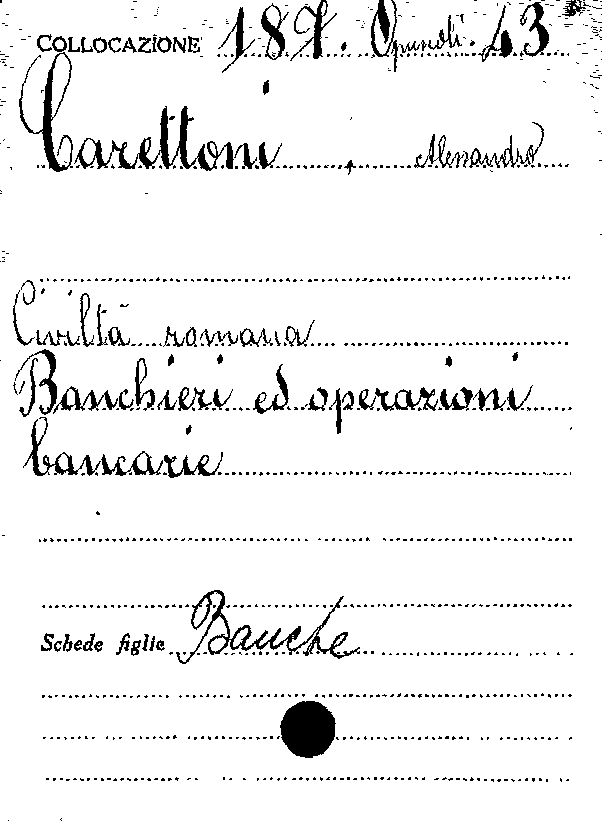 COLLOCAZIONE 187. Opuscoli. 43
Carettoni, Alessandro
Civiltà romana
Banchieri ed operazioni
bancarie
Schede figlie Banche